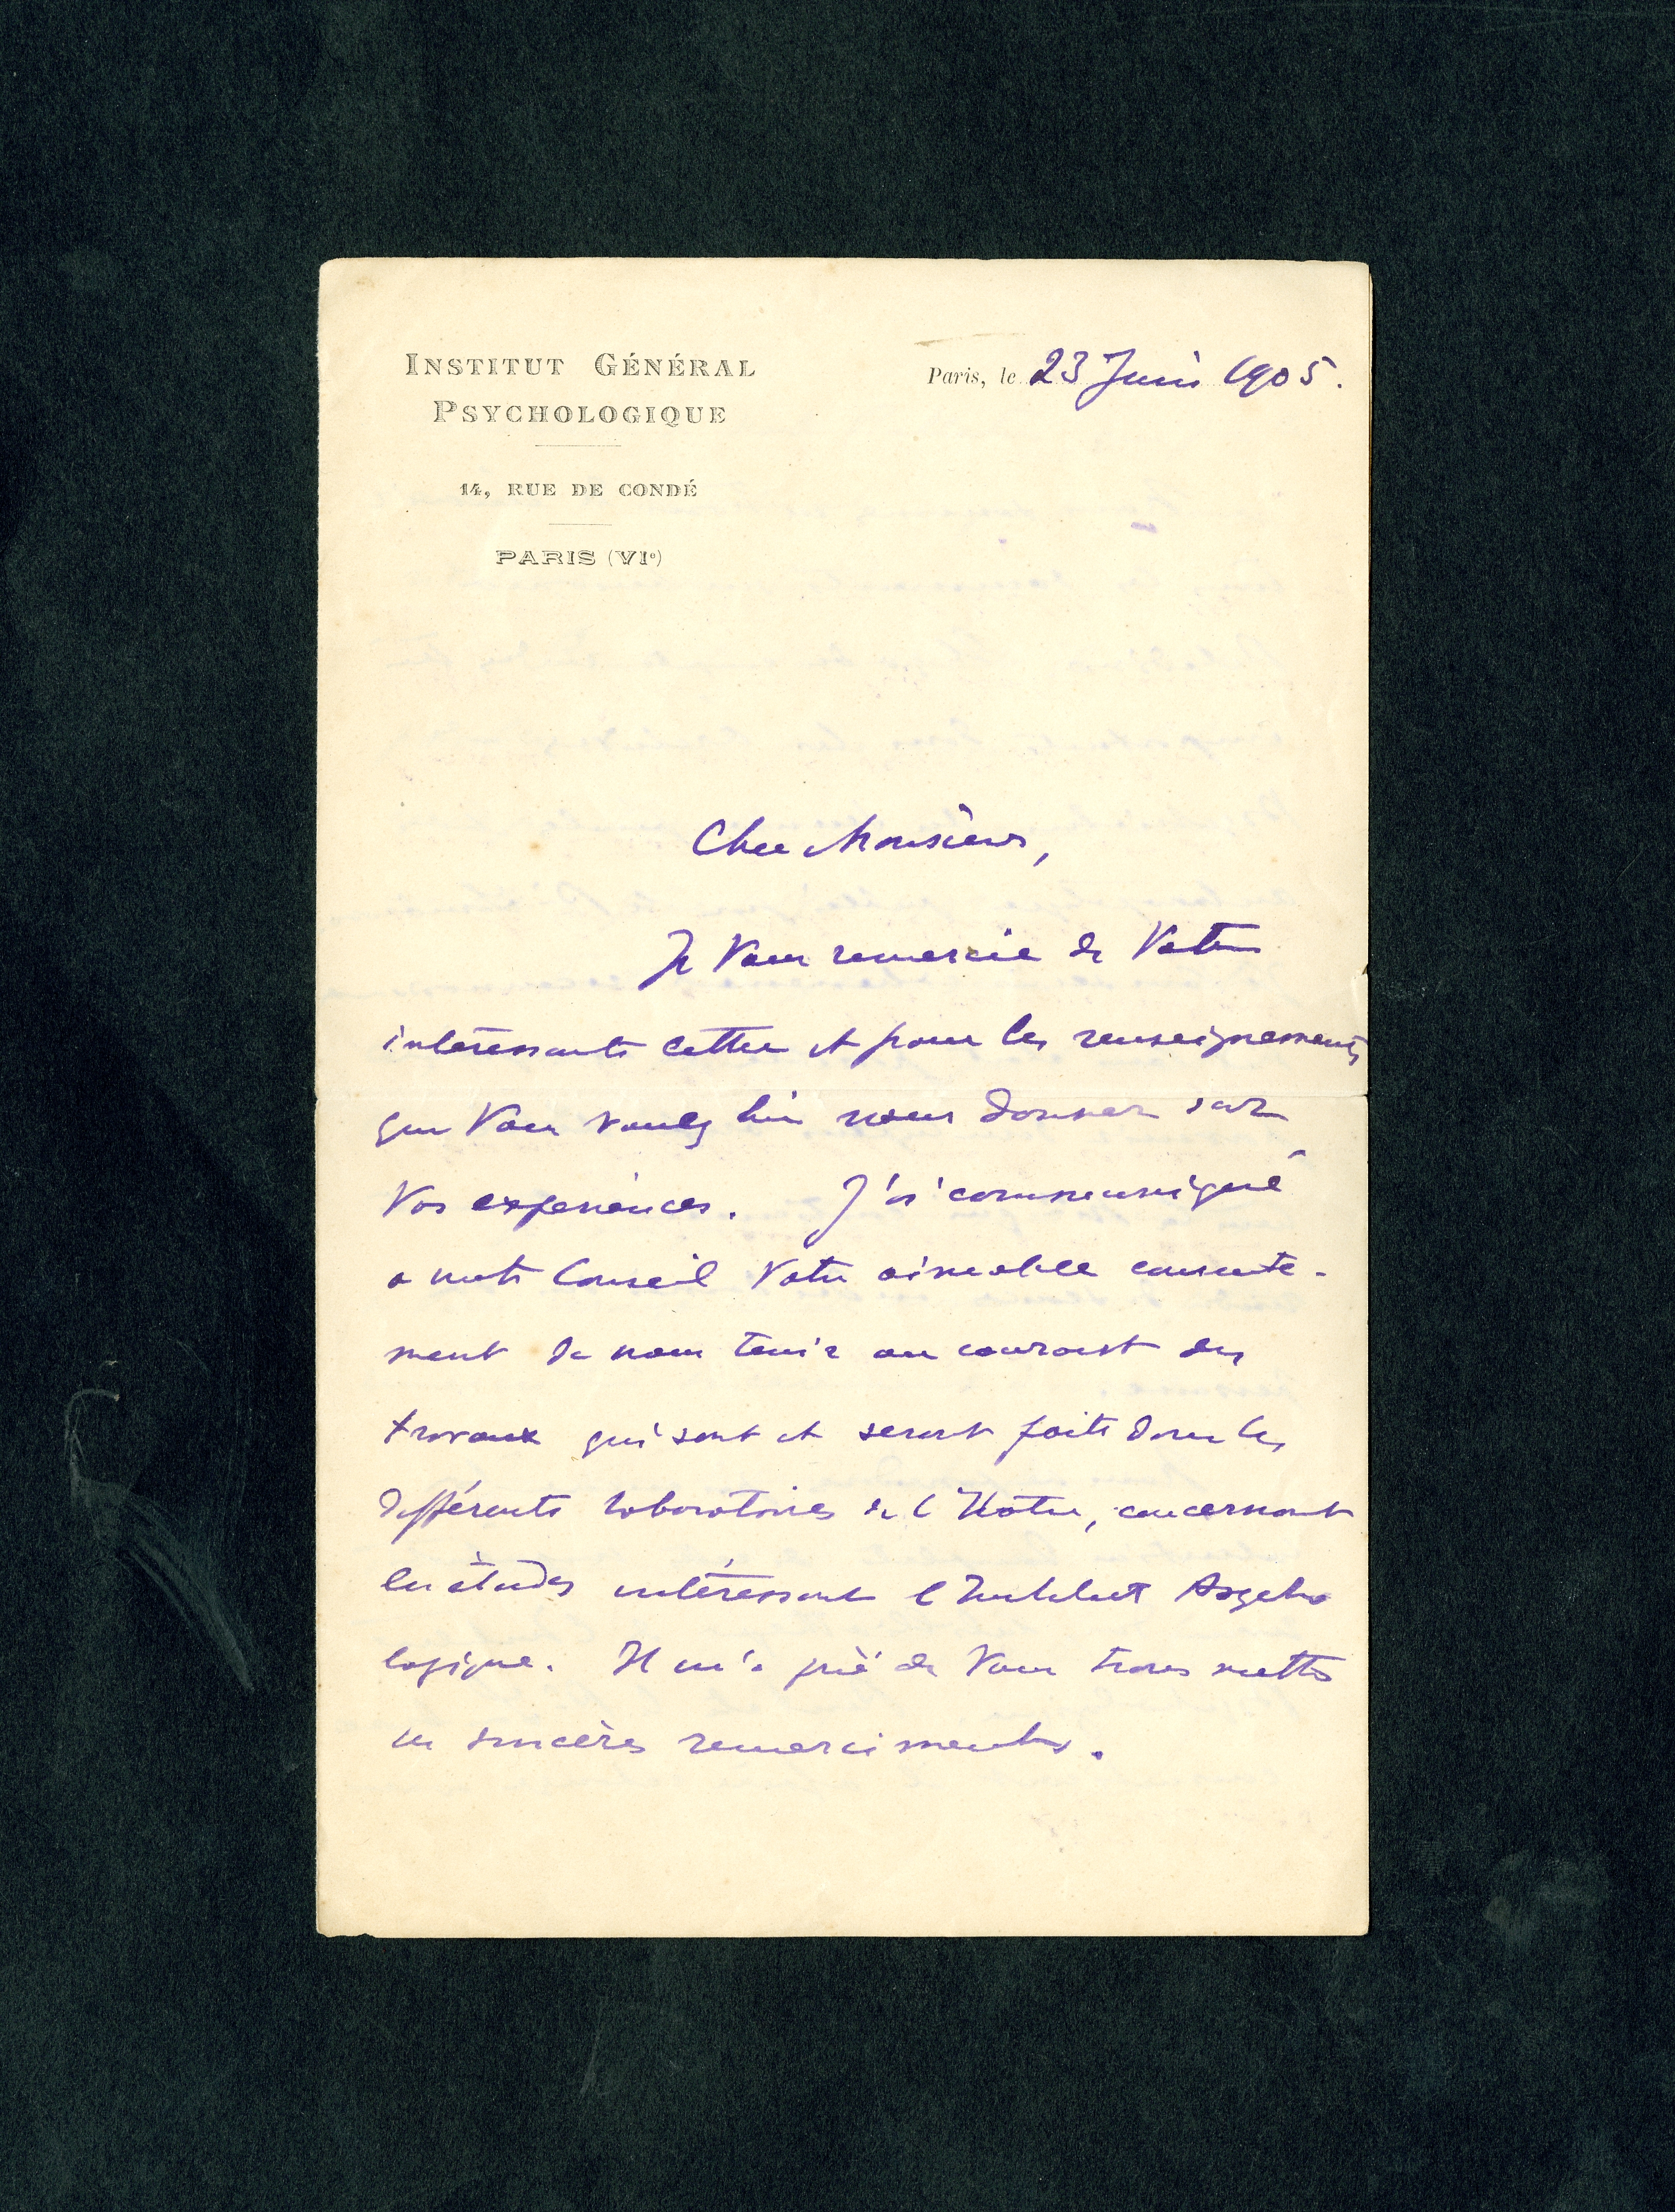 INSTITUT GÉNÉRAL
PSYCHOLOGIQUE
14, RUE DE CONDÉ
PARIS (VIe)
Paris, le 23 Juin 1905.
Cher Monsieur,
Je Vous remercie de Votre
intéressante lettre et pour les renseignements
que Vous voulez bien nous donner sur
Vos expériences. J'ai communiqué
a notre Conseil Votre aimable consente-
ment de nous tenir au courant des
travaux qui sont et seront faits dans les
différents laboratoires de
concernant
les études intéressant l'Institut Psycho
logique. Il m'a prié de Vous transmettre
ses sincères remerciments.